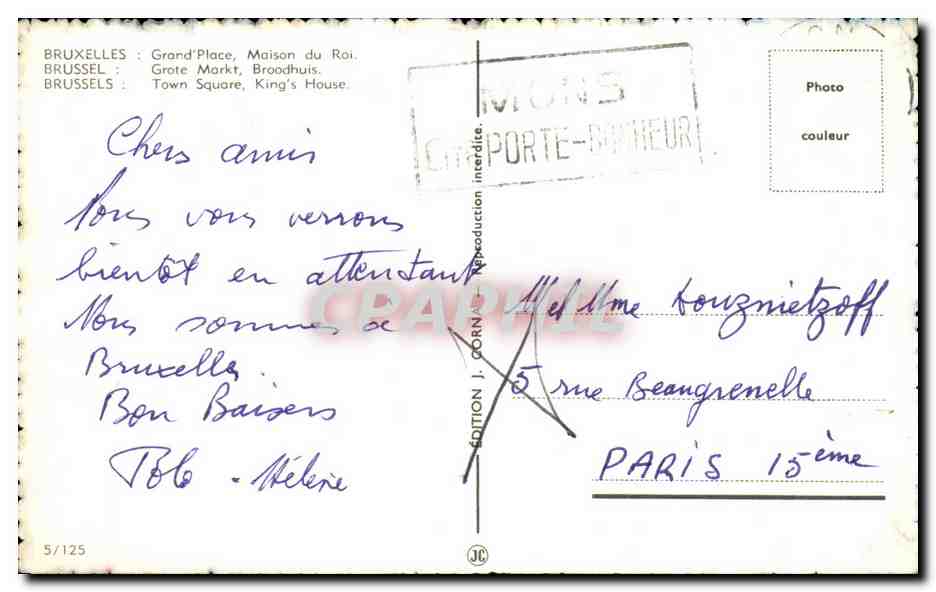 BRUXELLES : Grand'Place, Maison du Roi.
BRÜSSEL : Grote Markt, Broodhuis.
BRUSSELS : Town Square, King's House.
MONS
Cité PORTE-BONHEUR
Photo
couleur
Chers amis
Nous vous verrons
bientôt en attendant
Nous sommes à
Bruxelles.
Bon Baisers
Polo - Hélène
M et Mme Douznietzoff
5 rue Beaugrenelle
PARIS 15ème
ÉDITION J. CORNA - Reproduction interdite.
CPARPHIL
5/125
JC